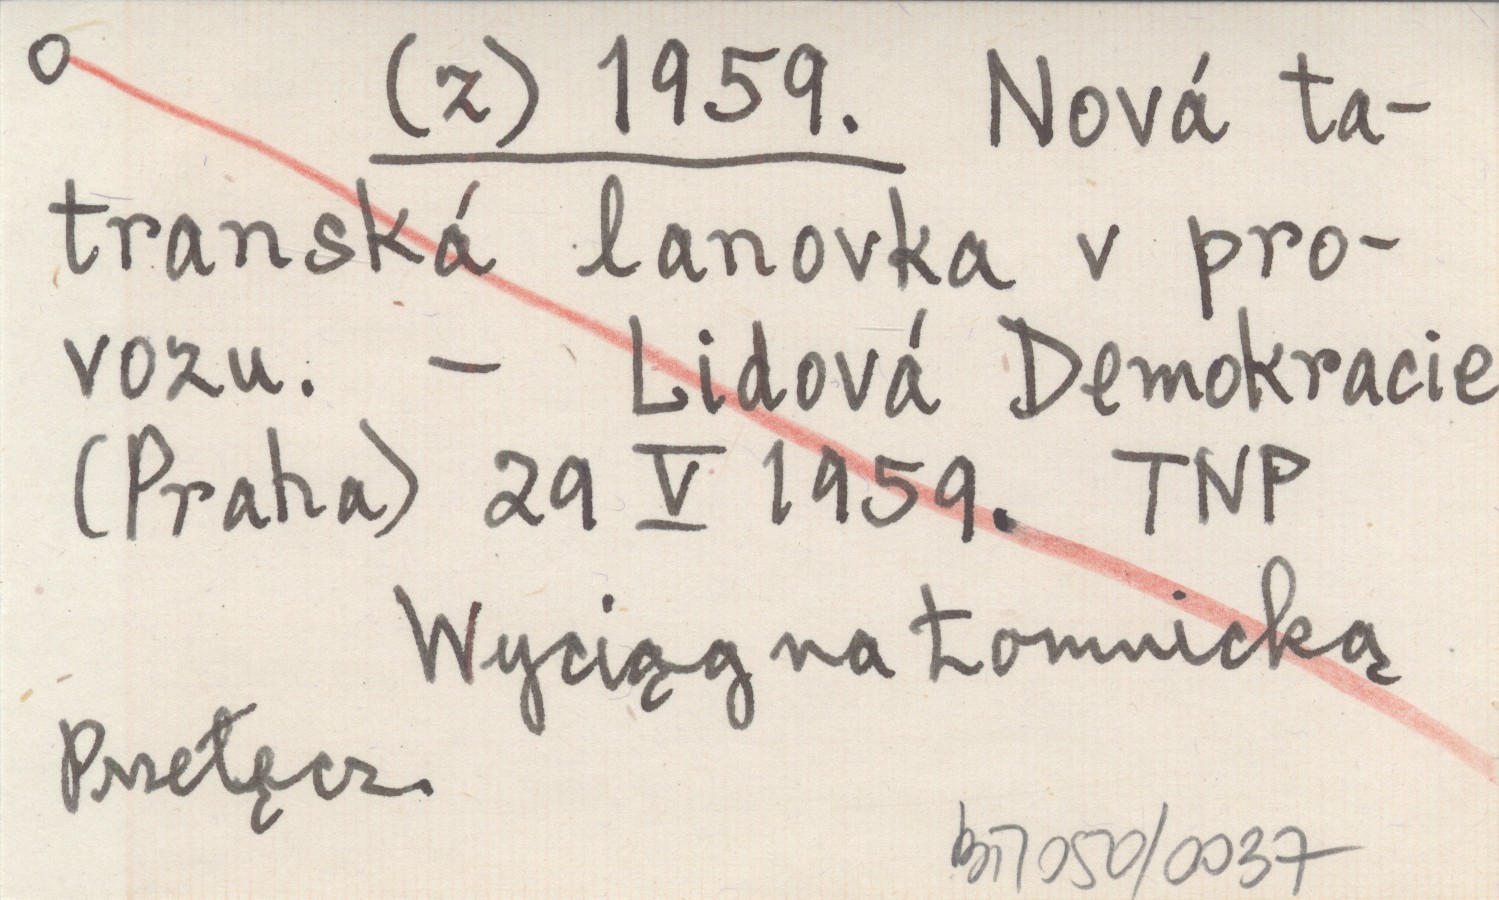 o (z) 1959. Nová ta-
transká lanovka v pro-
vozu. – Lidová Demokracie
(Praha) 29 V 1959. TNP
Wyciąg na Łomnicką
Przełęcz.
050/0037